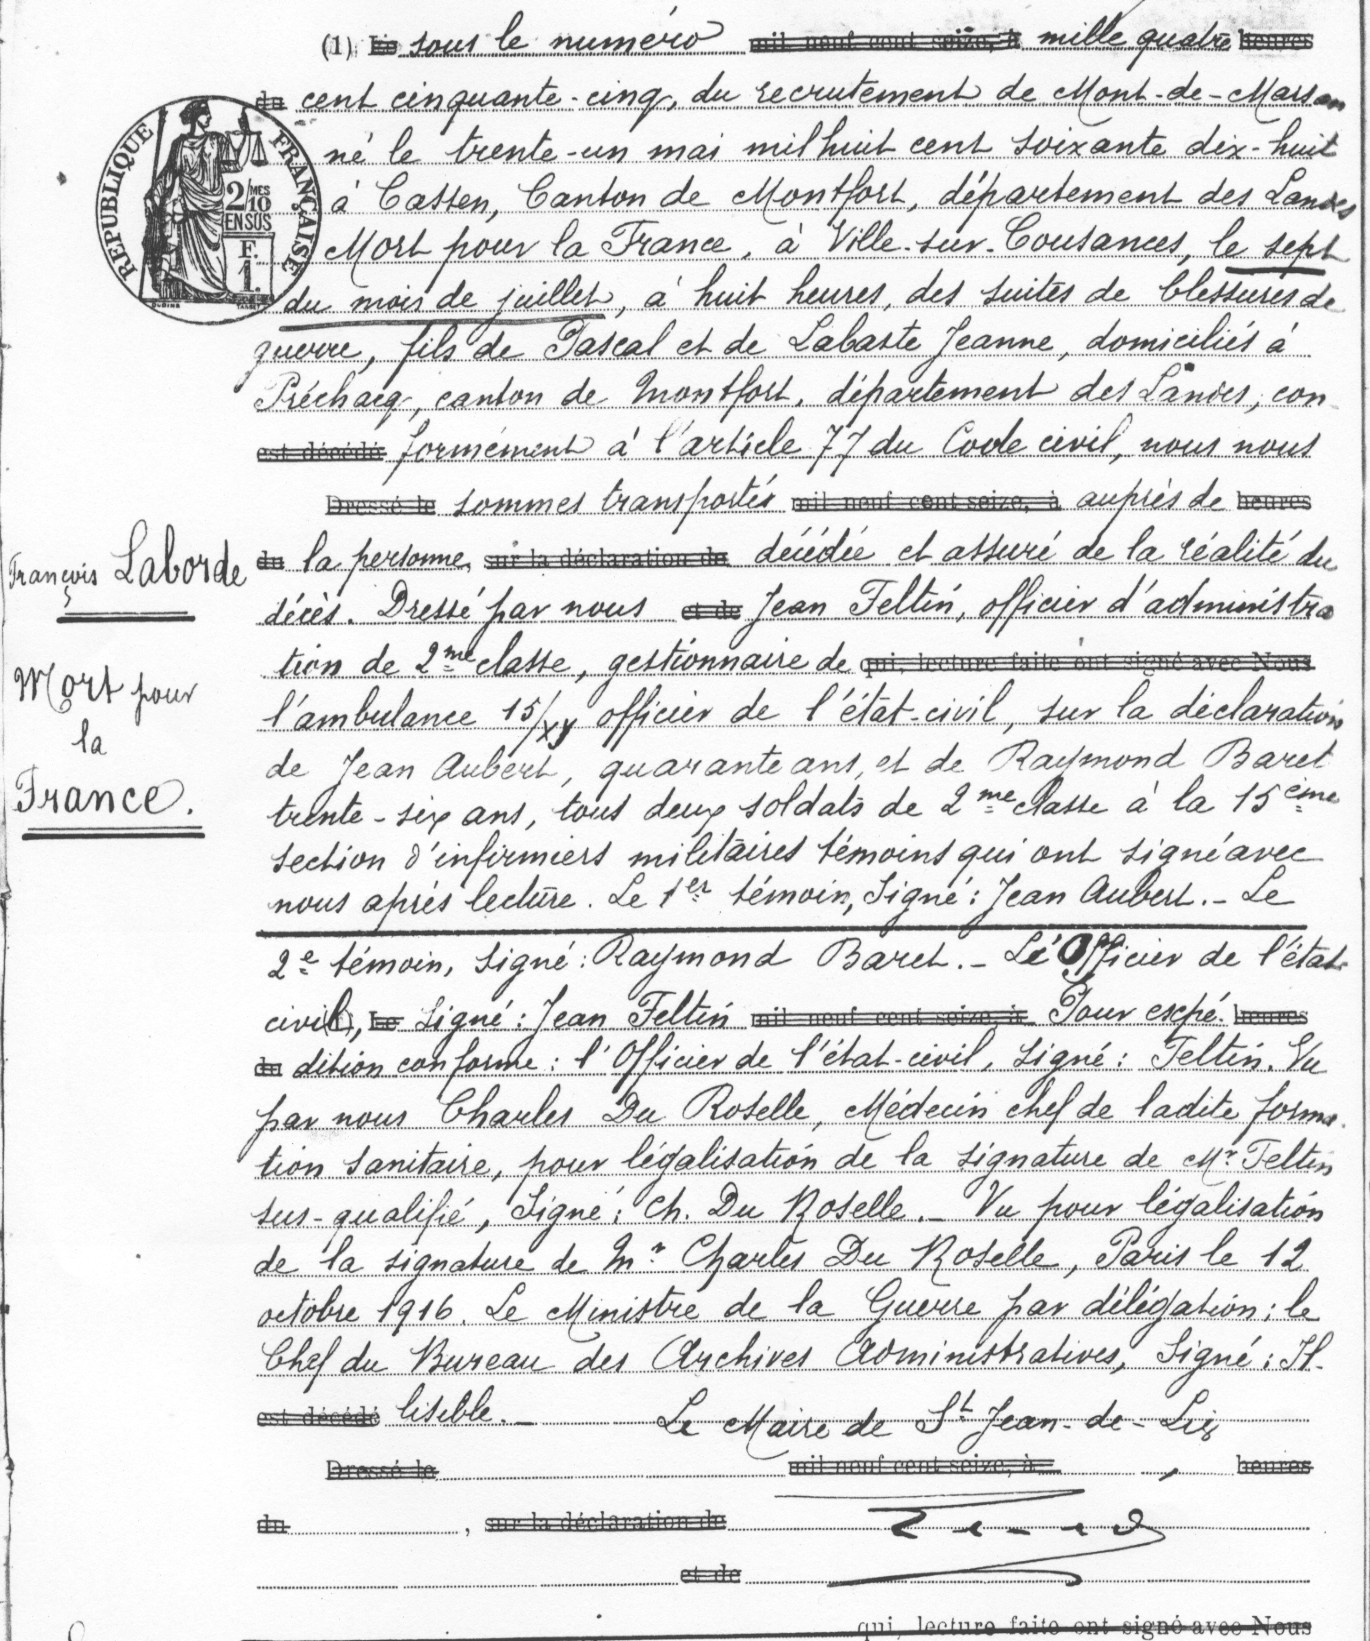 (1) Le sous le numéro mil neuf cent seize, à mille quatre heures
du cent cinquante-cinq, du recrutement de Mont-de-Marsan
né le trente-un mai mil huit cent soixante dix-huit
à Cassen, Canton de Montfort, département des Landes
Mort pour la France, à Ville-sur-Cousances, le sept
du mois de juillet, à huit heures, des suites de blessures de
guerre, fils de Pascal et de Labaste Jeanne, domiciliés à
Préchacq, canton de Montfort, département des Landes, con
est décédé formément à l'article 77 du Code civil, nous nous
Dressé le sommes transportés mil neuf cent seize, à auprès de heures
du la personne, sur la déclaration de décédée et assuré de la réalité du
décès. Dressé par nous et de Jean Feltin, officier d'administra
tion de 2me classe, gestionnaire de qui, lecture faite ont signé avec Nous
l'ambulance 15/xv officier de l'état-civil, sur la déclaration
de Jean Aubert, quarante ans, et de Raymond Baret
trente-six ans, tous deux soldats de 2me classe à la 15eime
section d'infirmiers militaires témoins qui ont signé avec
nous après lecture. Le 1er témoin, Signé: Jean Aubert. - Le
2e témoin, signé: Raymond Baret. - Lé Officier de l'état-
civil, Le Signé: Jean Feltin mil neuf cent seize, à Pour expé. heures
du dition conforme: l'Officier de l'état-civil, signé: Feltin. Vu
par nous Charles Du Roselle, Médecin chef de ladite forma-
tion sanitaire, pour légalisation de la signature de Mr Feltin
sus-qualifié, Signé: Ch. Du Roselle. - Vu pour légalisation
de la signature de Mr Charles Du Roselle, Paris le 12
octobre 1916. Le Ministre de la Guerre par délégation: le
Chef du Bureau des Archives Administratives, Signé: Il-
est décédé lisible. -
Le Maire de St Jean-de-Lier
Dressé le mil neuf cent seize, à , heures
du , sur la déclaration de
et de
qui, lecture faite ont signé avec Nous
RÉPUBLIQUE FRANÇAISE
2/10 MES
EN SUS
F.
1.
François Laborde
Mort pour
la
France.